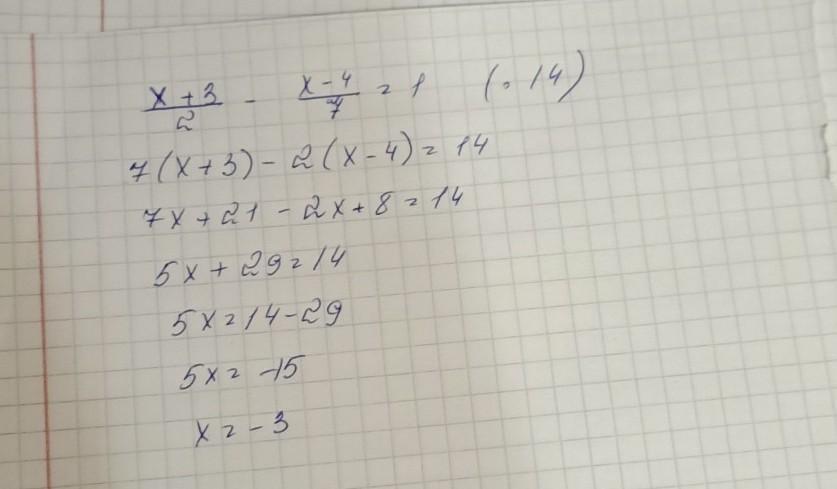 x+3/2 - x-4/7 = 1 (· 14)
7(x+3) - 2(x-4) = 14
7x + 21 - 2x + 8 = 14
5x + 29 = 14
5x = 14 - 29
5x = -15
x = -3